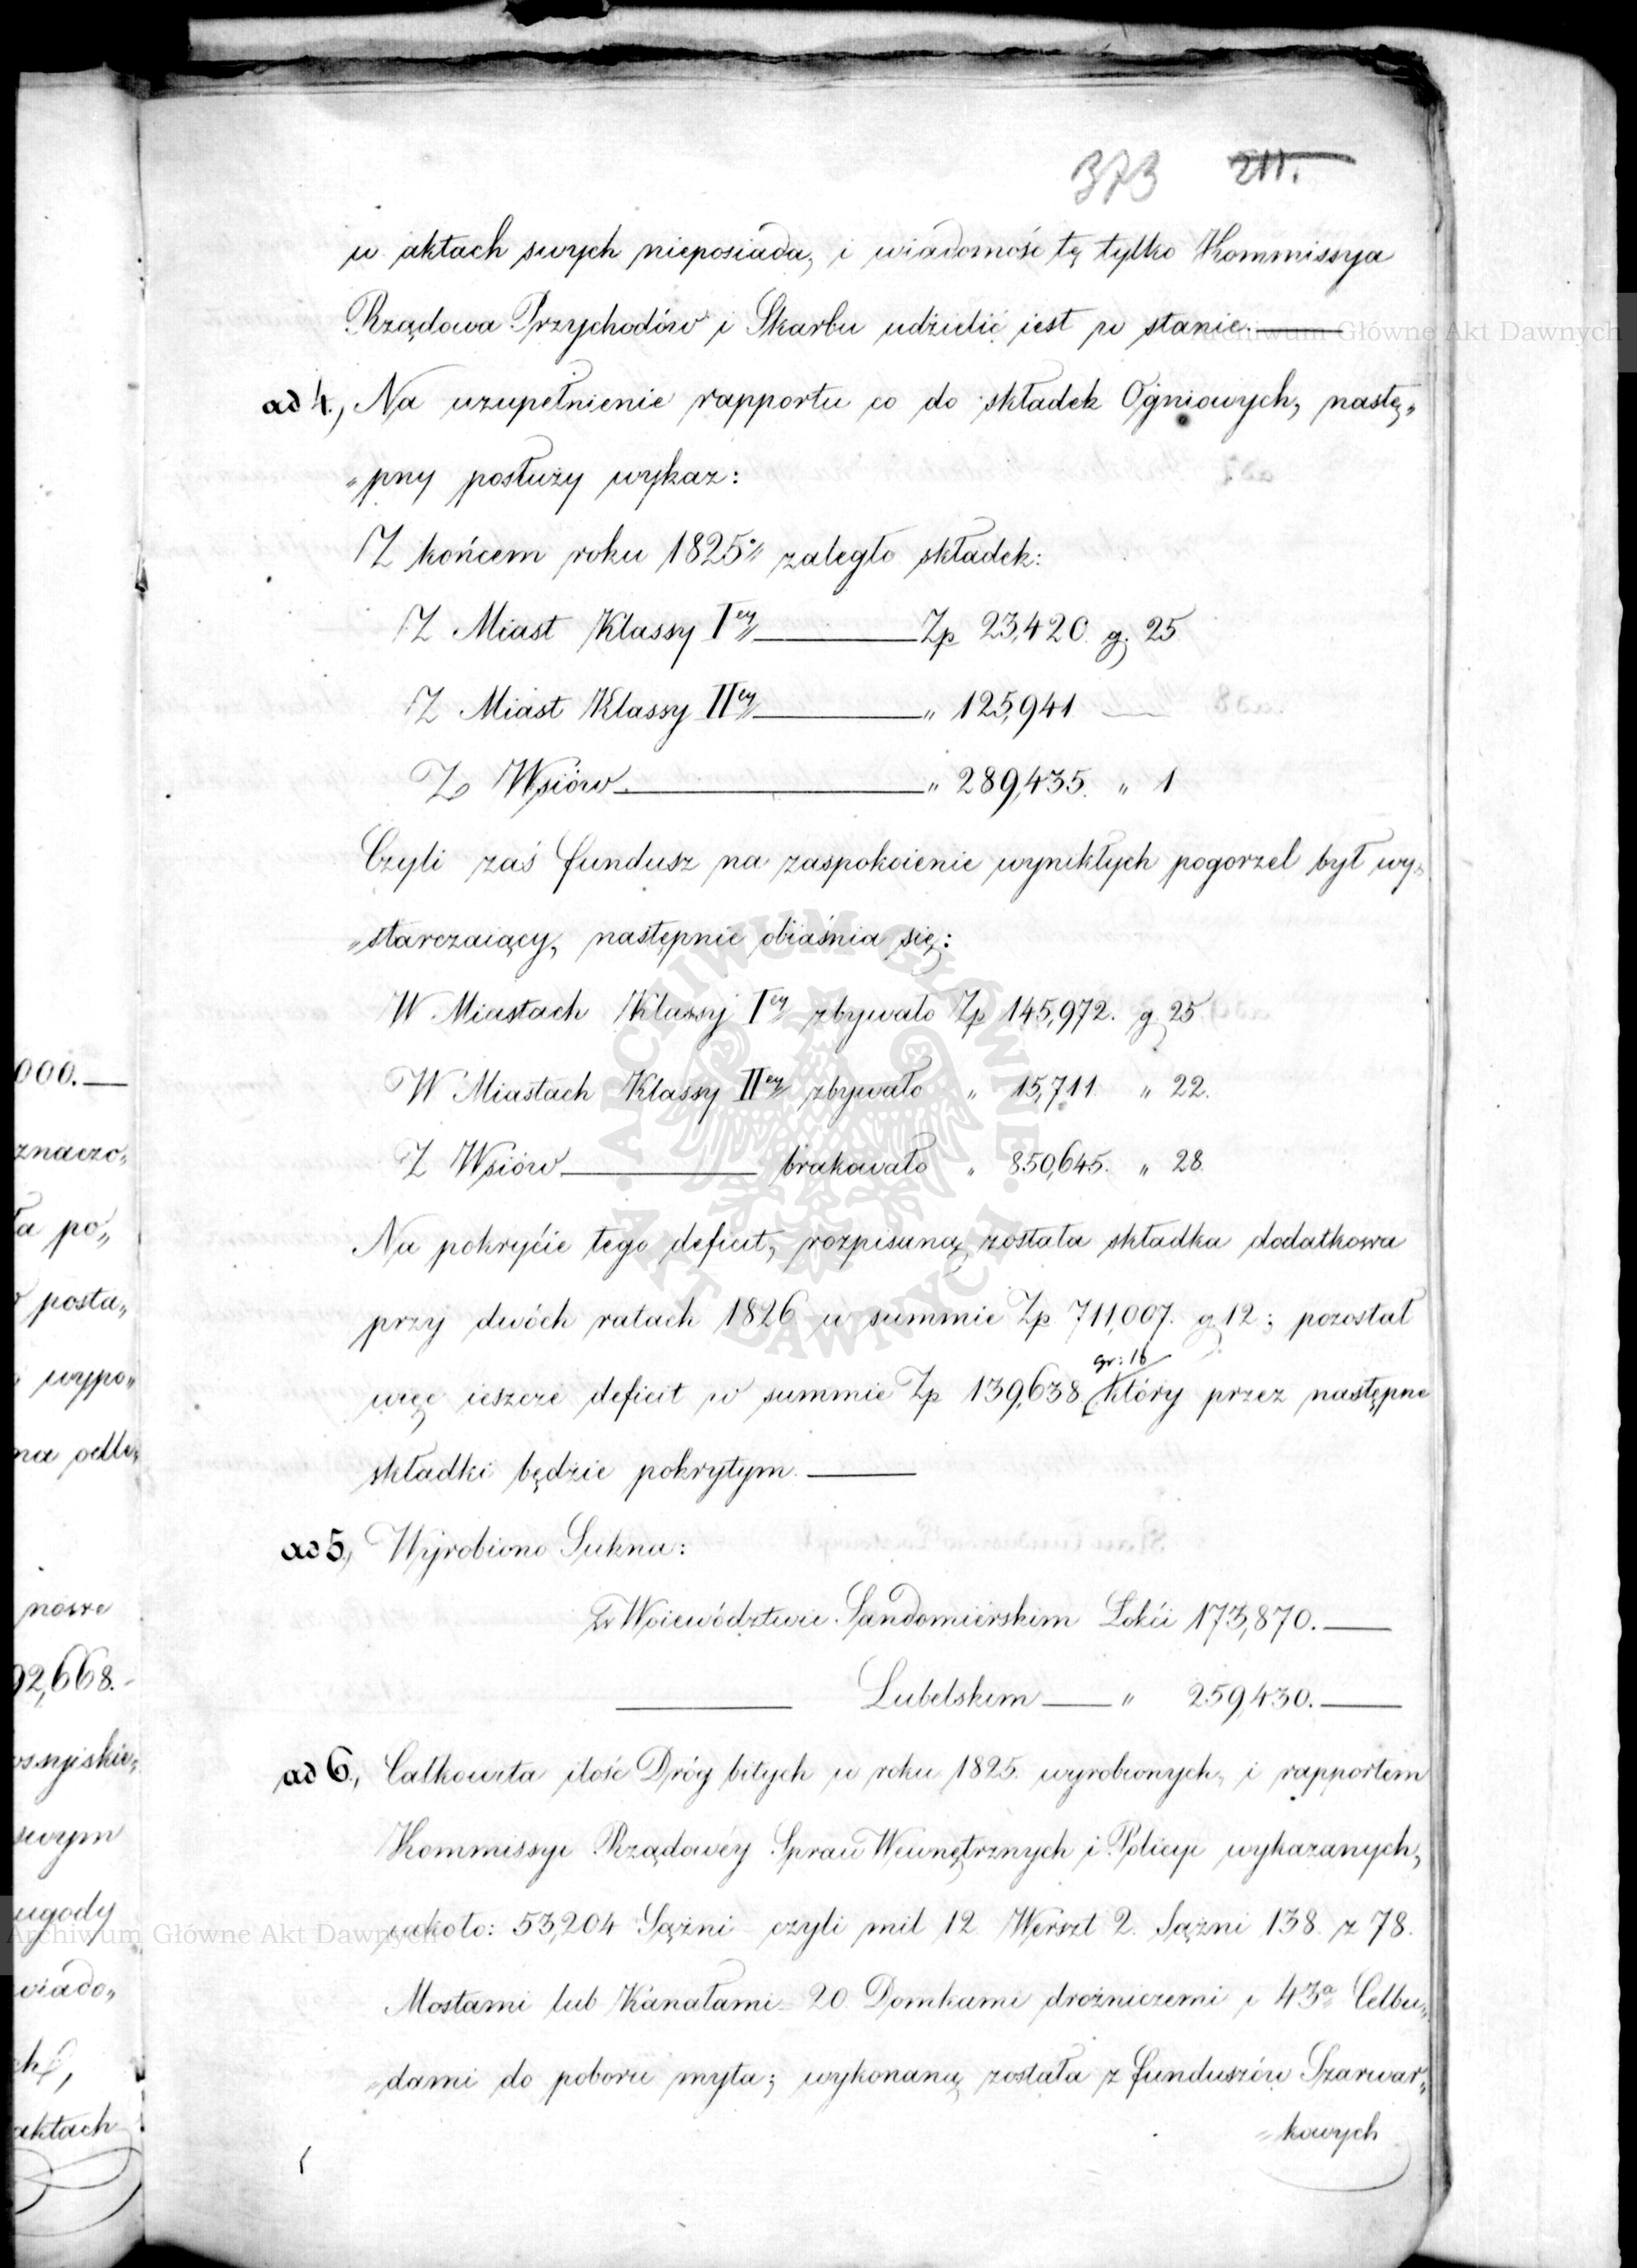 373 211.
w aktach swych nieposiada, i wiadomość tę tylko Kommissya
Rządowa Przychodów i Skarbu udzielić iest w stanie.
ad 4, Na uzupełnienie rapportu co do składek Ogniowych, nastę„
„pny posłuży wykaz:
Z końcem roku 1825 zaległo składek:
Z Miast Klassy Iey Zp 23,420. g. 25
Z Miast Klassy IIey „ 125,941 —
Ze Wsiów „ 289,435. „ 1
Czyli zaś fundusz na zaspokoienie wynikłych pogorzel był wy„
„starczaiący, następnie obiaśnia się:
W Miastach Klassy Iey zbywało Zp 145,972. g. 25
W Miastach Klassy IIey zbywało „ 15,711. „ 22.
Z Wsiów brakowało „ 850,645. „ 28.
Na pokrycie tego deficit, rozpisaną została składka dodatkowa
przy dwóch ratach 1826 w summie Zp 711,007. g 12; pozostał
gr: 16
więc ieszcze deficit w summie Zp 139,638 który przez następne
składki będzie pokrytym.
ad 5, Wyrobiono Sukna:
w Woiewództwie Sandomierskim Łokci 173,870.
Lubelskim „ 259,430.
ad 6, Całkowita ilość Dróg bitych w roku 1825. wyrobionych, i rapportem
Kommissyi Rządowéy Spraw Wewnętrznych i Policyi wykazanych,
wokoło: 53,204 Sążni czyli mil 12 Werszt 2. Sążni 138. z 78.
Mostami lub Kanałami 20 Domkami drożniczemi i 43a Celbu„
„dami do poboru myta; wykonaną została z funduszów Szarwar„
„kowych
000.
znaczo„
ła po„
posta„
wypo„
na odle„
nowe
92,668.
swym
ugody
wiado„
aktach
Archiwum Główne Akt Dawnych
Archiwum Główne Akt Dawnych
ARCHIWUM GŁÓWNE AKT DAWNYCH